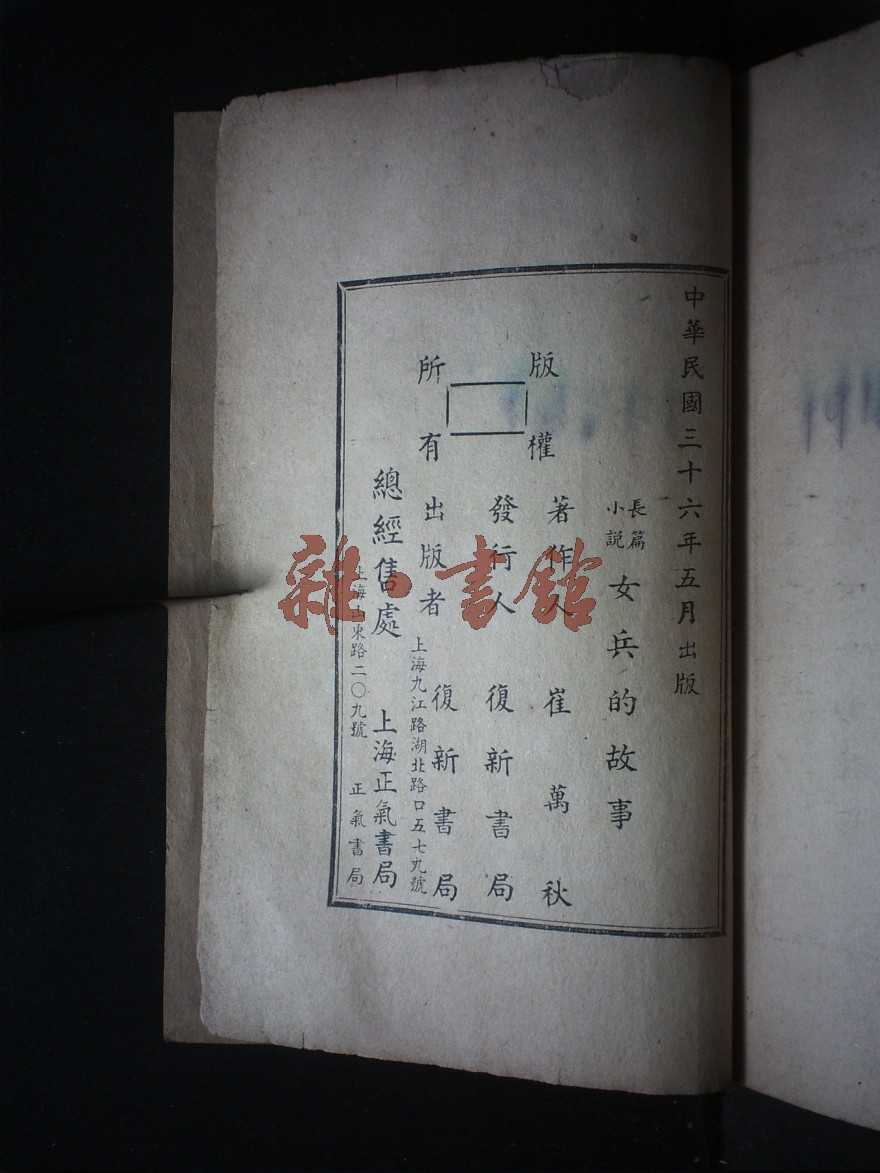 中華民國三十六年五月出版
長篇
小説
女兵的故事
版權
所有
著作人 崔萬秋
發行人 復新書局
出版者 復新書局
上海九江路湖北路口五七九號
總經售處 上海正氣書局
上海山東路二〇九號 正氣書局
雜·書館